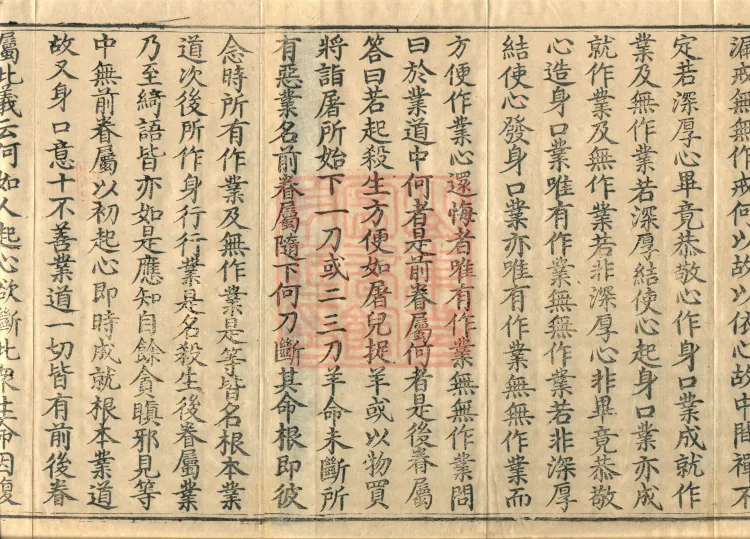 漏戒無無作戒何以故以依心故中間禪不
定若深厚心畢竟恭敬心作身口業成就作
業及無作業若深厚結使心起身口業亦成
就作業及無作業若非深厚心非畢竟恭敬
心造身口業唯有作業無無作業若非深厚
結使心發身口業亦唯有作業無無作業而
方便作業心還悔者唯有作業無無作業問
曰於業道中何者是前眷屬何者是後眷屬
答曰若起殺生方便如屠兒捉羊或以物買
將詣屠所始下一刀或二三刀羊命未斷所
有惡業名前眷屬隨下何刀斷其命根即彼
念時所有作業及無作業是等皆名根本業
道次後所作身行行業是名殺生後眷屬業
乃至綺語皆亦如是應知自餘貪瞋邪見等
中無前眷屬以初起心即時成就根本業道
故又身口意十不善業道一切皆有前後眷
屬此義云何如人起心欲斷此眾生命因復